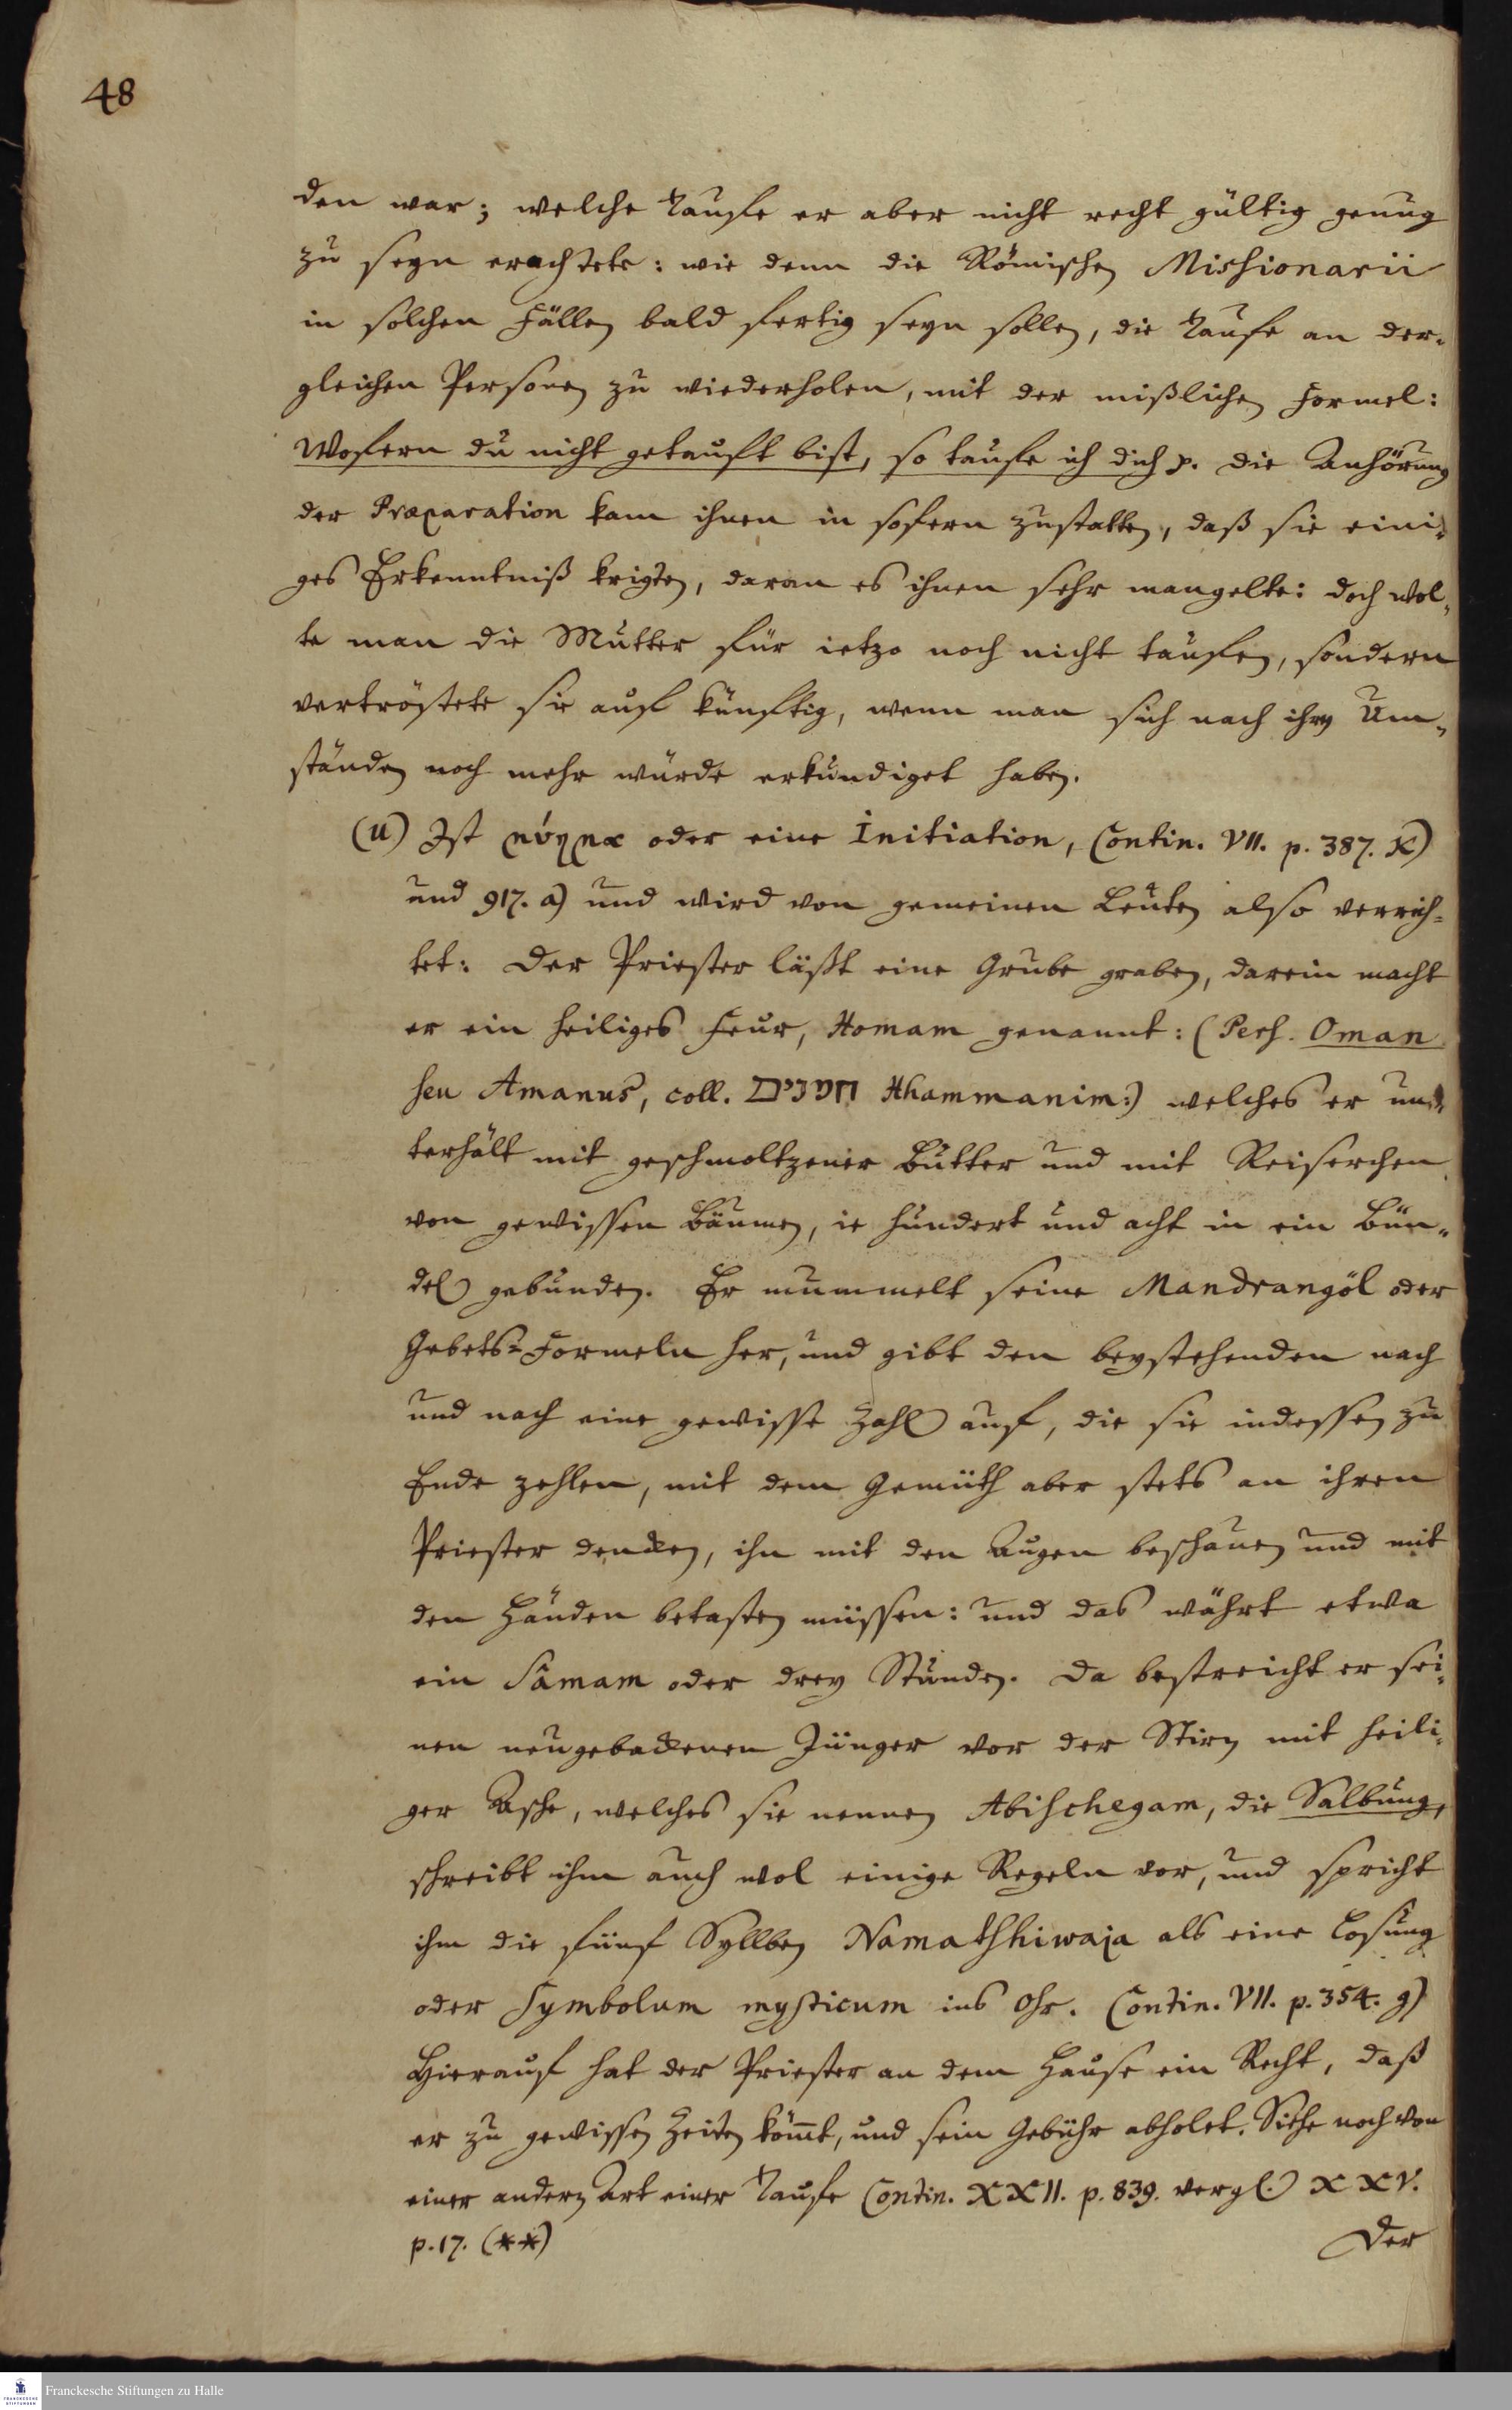 48
den war; welche Taufe er aber nicht recht gültig genug
zu seyn erachtete: wie denn die Römischen Missionarii
in solchen Fällen bald fertig seyn sollen, die Taufe an der-
gleichen Personen zu wiederholen, mit der mißlichen Formel:
Wofern du nicht getauft bist, so taufe ich dich p. Die Anhörung
der Præparation kam ihnen in sofern zustatten, daß sie eini-
ges Erkenntniß krigten, daran es ihnen sehr mangelte: doch wol-
te man die Mutter für ietzo noch nicht taufen, sondern
vertröstete sie auf künftig, wenn man sich nach ihren Um-
ständen noch mehr würde erkundiget haben.
(u) Ist oder eine Initiation, Contin. VII. p. 387. x)
und 917. a) und wird von gemeinen Leuten also verrich-
tet: Der Priester läßt eine Grube graben, darein macht
er ein heiliges Feur, Homam genannt: (Pers. Oman
seu Amanus, coll. חמנים Hhammanim:) welches er un-
terhält mit geschmoltzener Butter und mit Reiserchen
von gewissen Bäumen, ie hundert und acht in ein Bün-
del gebunden. Er mummelt seine Mandrangöl oder
Gebets-Formeln her, und gibt den beystehenden nach
und nach eine gewisse Zahl auf, die sie indessen zu
Ende zehlen, mit dem Gemüth aber stets an ihren
Priester dencken, ihn mit den Augen beschauen und mit
den Händen betasten müssen: und das währt etwa
ein Sâmam oder drey Stunden. Da bestreicht er sei-
nen neugebackenen Jünger vor der Stirn mit heili-
ger Asche, welches sie nennen Abischegam, die Salbung,
schreibt ihm auch wol einige Regeln vor, und spricht
ihm die fünf Syllben Namatshiwaja als eine Losung
oder Symbolum mysticum ins Ohr. Contin. VII. p. 354. g)
Hierauf hat der Priester an dem Hause ein Recht, daß
er zu gewissen Zeiten kömt, und sein Gebühr abholet. Siehe noch von
einer andern Art einer Taufe Contin. XXII. p. 839. vergl. XXV.
p. 17. (**)
Der
Franckesche Stiftungen zu Halle